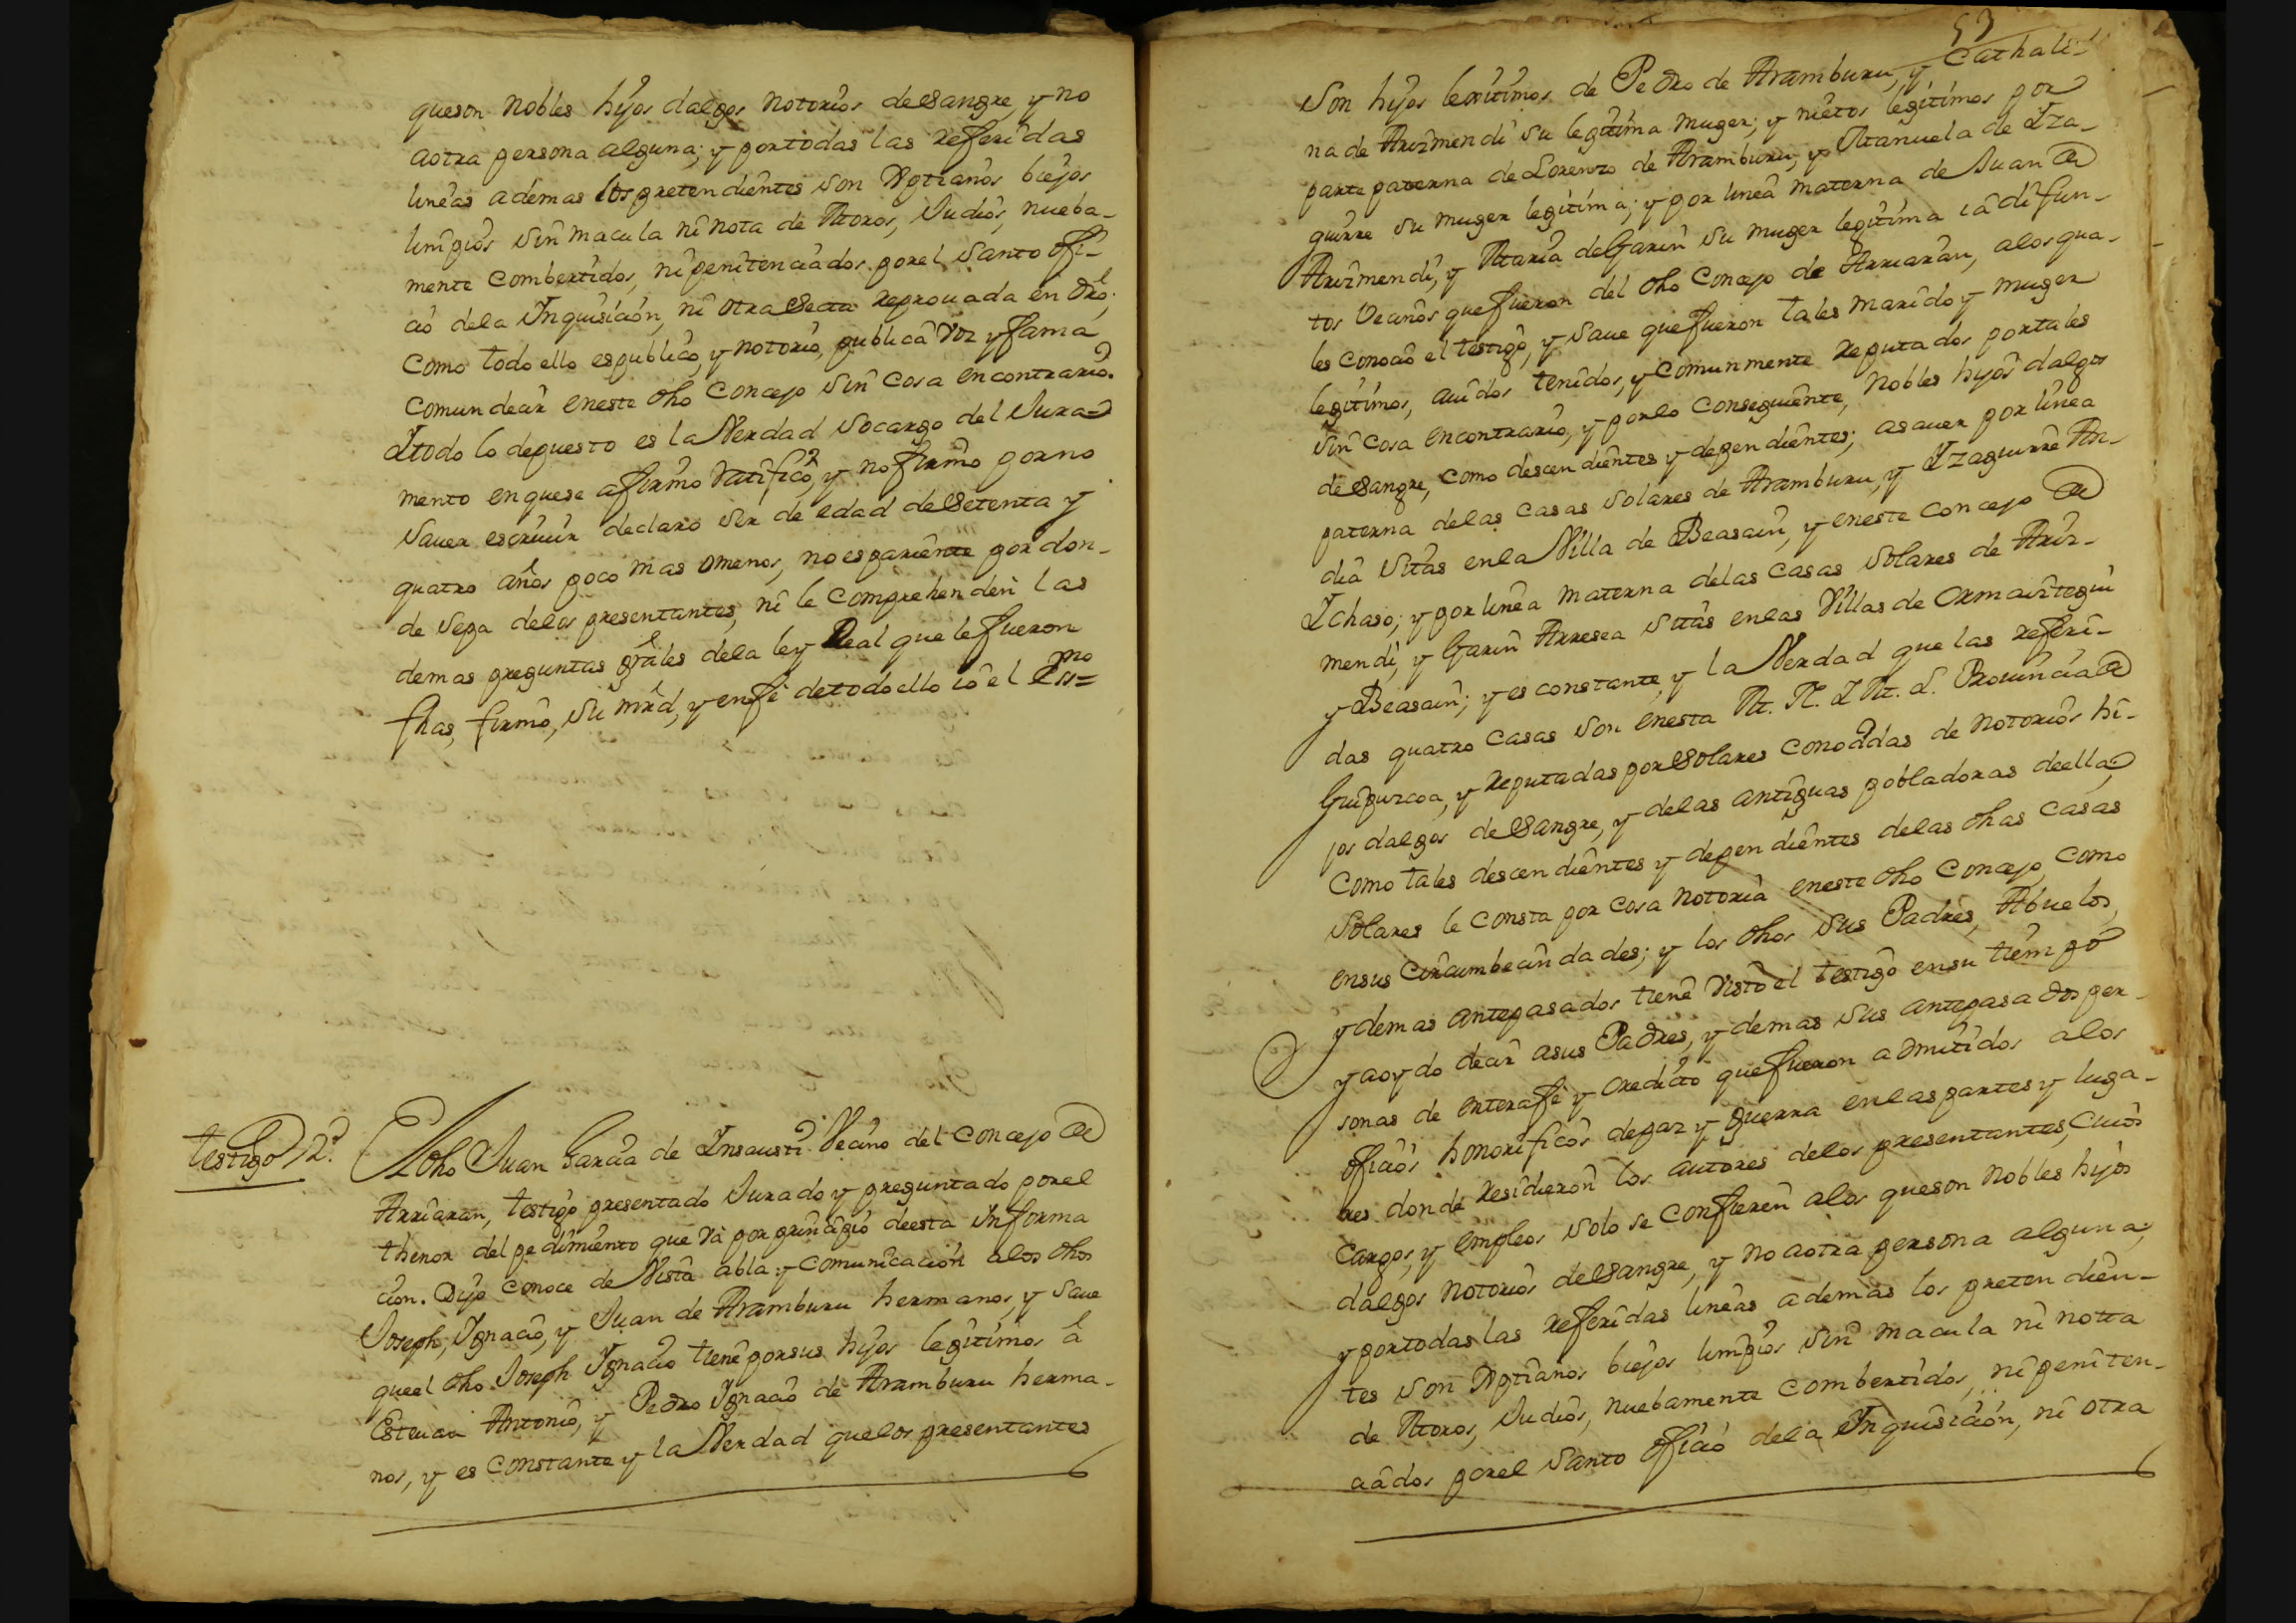 queson nobles hijos dalgos notorios desangre, y no
aotra persona alguna; y portodas las referidas
lineas ademas los pretendientes son Xptianos biejos
limpios sin macula ni nota de Moros, Judios, nueba-
mente combertidos, ni penitenciados porel Santo ofi-
cio dela Inquisicion, ni otra Secta reprouada en dro;
como todo ello espublico, y notorio, publica voz y fama
comun decir eneste dho Concejo sin cosa encontrario.
Y todo lo depuesto es la Verdad socargo del Jura-
mento enquese afirmo ratifico, y nofirmo porno
sauer escriuir declaro ser de edad desetenta y
quatro años poco mas omenos, no espariente pordon-
de sepa delos presentantes, ni le comprehenden las
demas preguntas grales dela ley Real que lefueron
fhas, firmo, su mrd, y enfe detodoello io el Essno=
testigo 2º. El dho Juan Garcia de Insausti Vecino del concejo de
Arriaran, testigo presentado Jurado y preguntado porel
thenor del pedimiento que va por principio deesta informa
cion. Dijo conoce de Vista abla y comunicacion alos dhos
Joseph, Ignacio, y Juan de Aramburu hermanos, y saue
queel dho Joseph Ignacio tiene porsus hijos legitimos à
Esteuan Antonio, y Pedro Ignacio de Aramburu herma-
nos, y es constante y la Verdad quelos presentantes
53
son hijos lexitimos de Pedro de Aramburu, y Cathali-
na de Arizmendi su legitima muger; y nietos legitimos por
parte paterna de Lorenzo de Aramburu, y Manuela de Yza-
guirre su muger legitima; y por linea materna de Juan de
Arizmendi, y Maria deGarin su muger legitima ia difun-
tos Vecinos quefueron del dho Concejo de Arriaran, alosqua-
les conocio el testigo, y saue quefueron tales marido y muger
legitimos, auidos tenidos, y comunmente reputados portales
sin cosa encontrario, y porlo consiguiente, nobles hijos dalgos
desangre, como descendientes y dependientes; asauer por linea
paterna delas casas solares de Aramburu, y Yzaguirre An-
dia sitas enla Villa de Beasain, y eneste concejo de
Ychaso; y por linea materna delas casas solares de Ariz-
mendi, y Garin Arresea sitas enlas Villas de Ormaiztegui
y Beasain; y es constante, y la Verdad que las referi-
das quatro casas son enesta M. N. Y M. L. Prouincia de
Guipuzcoa, y reputadas porsolares conocidas de notorios hi-
jos dalgos desangre, y delas antiguas pobladoras deella,
como tales descendientes y dependientes delas dhas casas
solares le consta por cosa notoria eneste dho Concejo, como
ensus circumbecindades; y los dhos sus Padres, Abuelos,
y demas antepasados tiene visto el testigo ensu tiempo
y aoydo decir asus Padres, y demas sus antepasados per-
sonas de enterafe y credicto quefueron admitidos alos
oficios honorificos depaz y guerra enlaspartes y luga-
res donde residieron los autores delos presentantes, cuios
cargos, y empleos solo se confieren alos queson nobles hijos
dalgos notorios desangre, y no aotra persona alguna;
y portodas las referidas lineas ademas los pretendien-
tes son Xptianos biejos limpios sin macula ni notta
de Moros, Judios, nuebamente combertidos, ni peniten-
ciados porel Santo oficio dela Inquisicion, ni otra